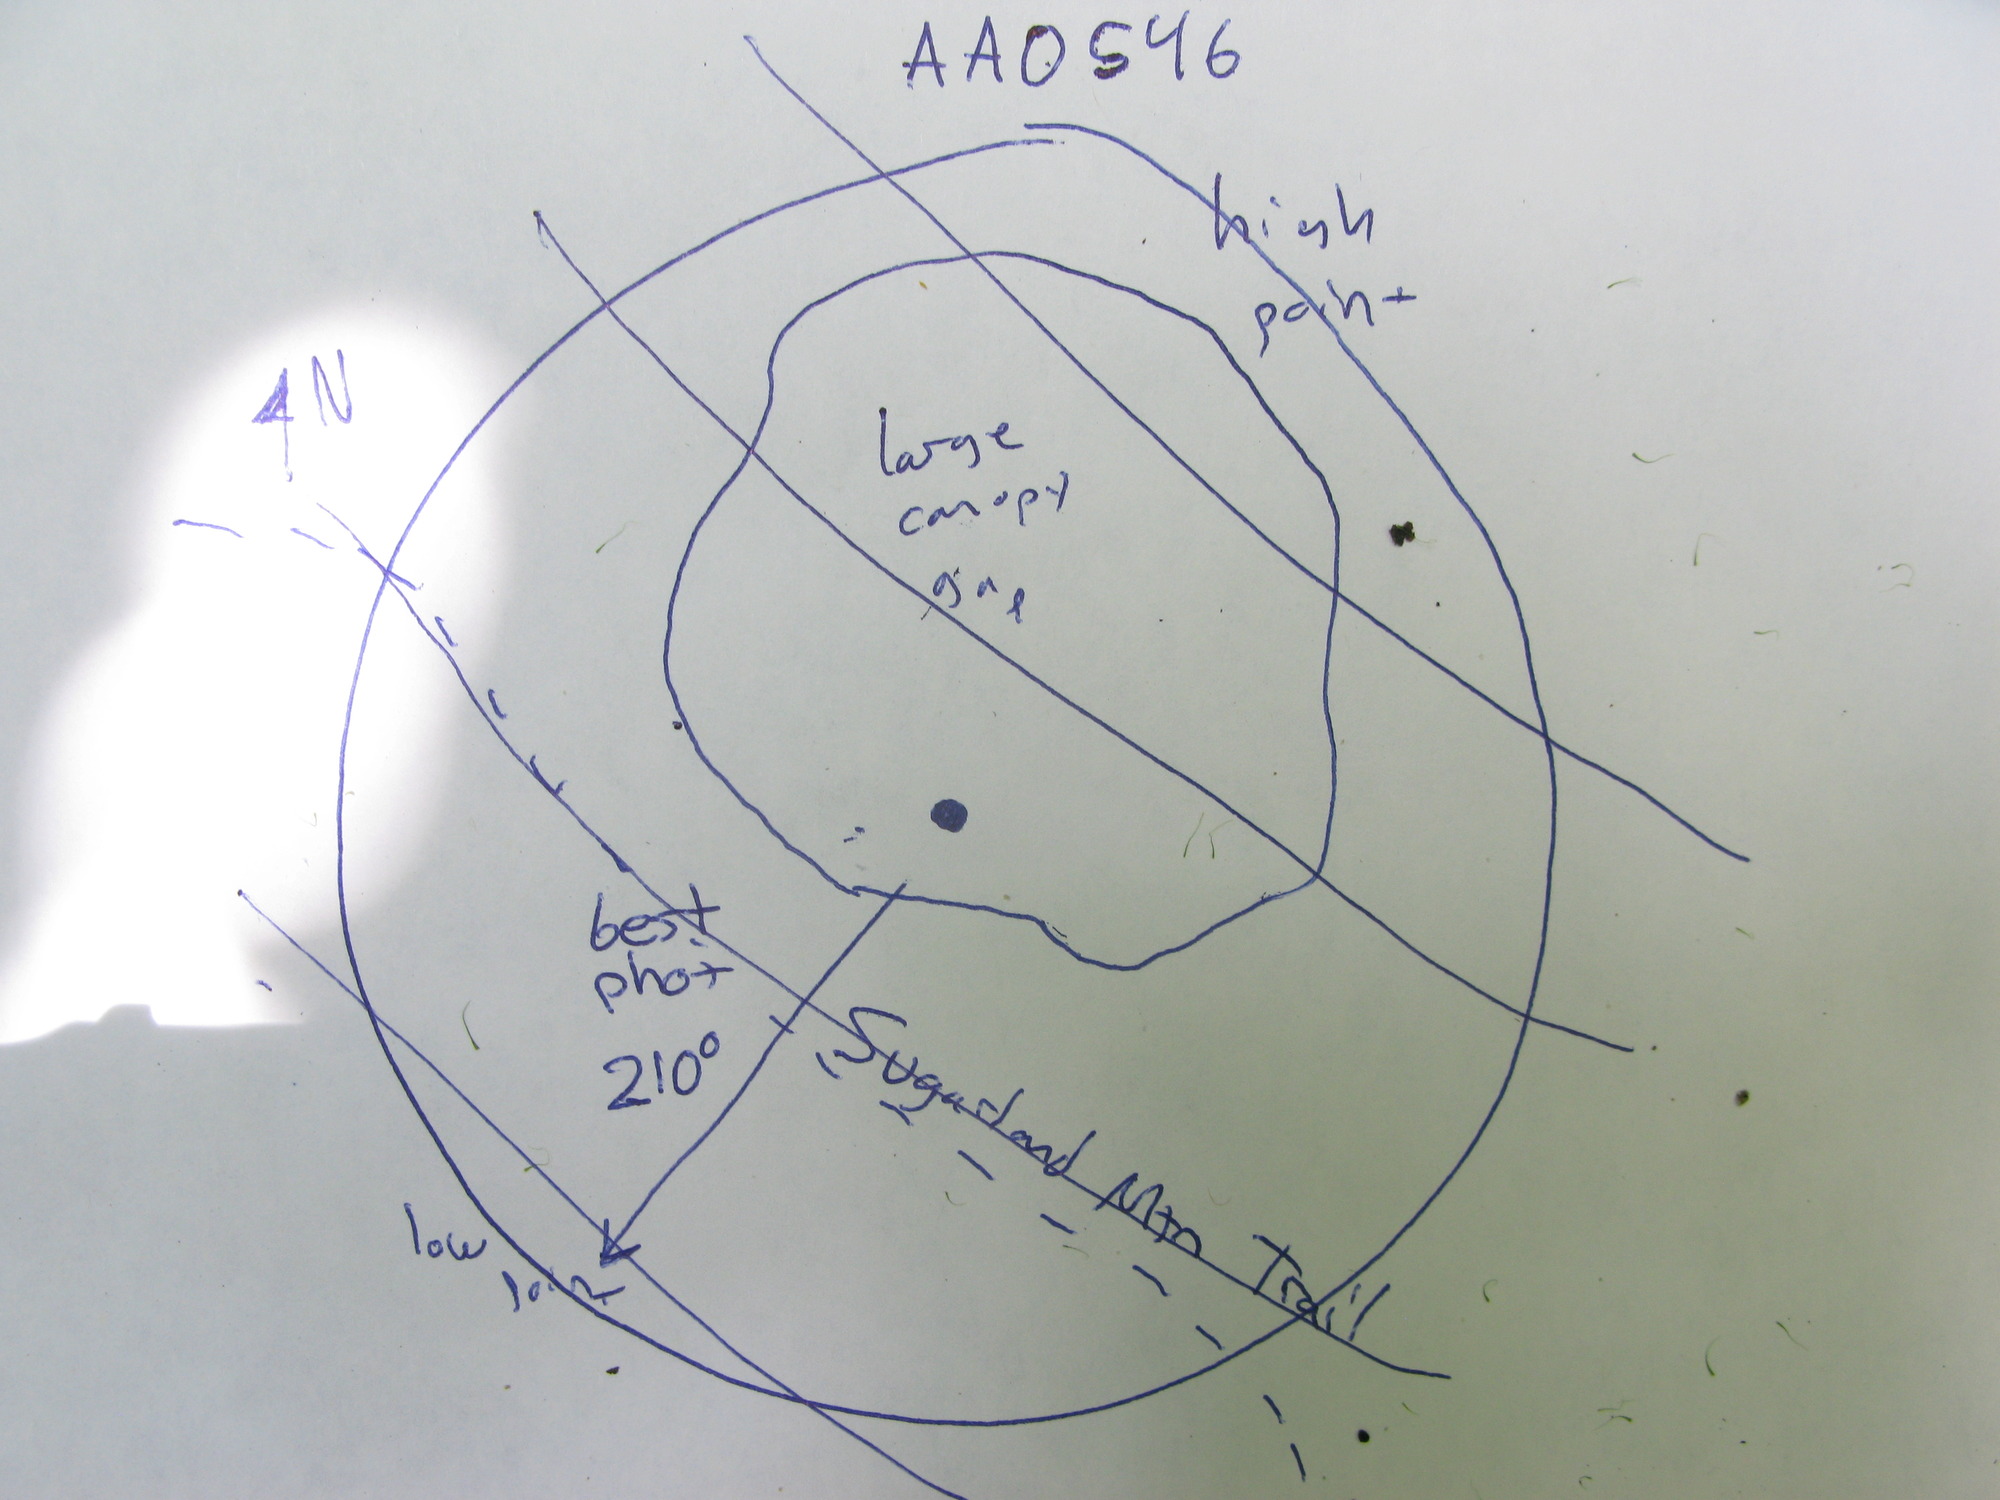 AAO546
high
point
N
large
canopy
gap
best
phot
210°
Sugarland Mtn Trail
low
point